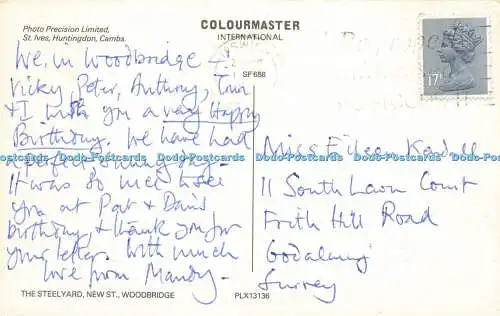 Photo Precision Limited,
St. Ives, Huntingdon, Cambs.
COLOURMASTER
INTERNATIONAL
SF 658
17P
We, in Woodbridge +
Vicky, Peter, Anthony, Tom
+ I wish you a very Happy
Birthday. We have had
perfect sunny days -
It was so nice to see
you at Pat +
birthday, + thank you for
your letter. With much
love from Mandy -
Miss
11 South Lawn Court
Frith Hill Road
Godalming
Surrey
THE STEELYARD, NEW ST., WOODBRIDGE
PLX13136
Dodo-Postcards Dodo-Postcards Dodo-Postcards Dodo-Postcards Dodo-Postcards